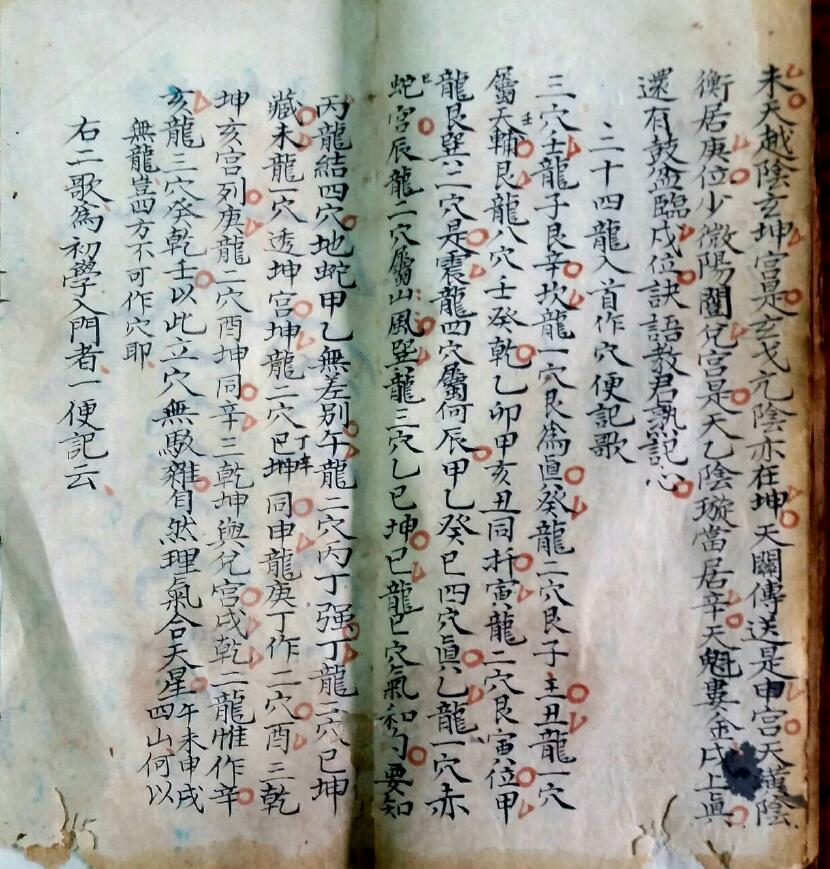 未天越陰玄坤宮是玄戈亢陰亦在坤天關傳送是申宮天漢陰
衡居庚位少微陽闔兌宮是天乙陰璇當居辛天魁婁金戌上眞
還有鼓盆臨戌位訣語教君熟記心
二十四龍入首作穴便記歌
三穴壬龍子艮辛坎龍一穴艮爲眞癸龍二穴艮子壬丑龍一穴
屬天輔艮龍八穴壬癸乾乙卯甲亥丑同扦寅龍二穴艮寅位甲
龍艮巽二穴是震龍四穴屬何辰甲乙癸巳四穴眞乙龍一穴赤
蛇宮辰龍二穴屬山風巽龍三穴乙巳坤巳龍巳穴氣和勻要知
丙龍結四穴地蛇甲乙無差别午龍二穴丙丁强丁龍三穴巳坤
藏未龍一穴透坤宮坤龍二穴巳坤丁辛同申龍庚丁作二穴酉三乾
坤亥宮列庚龍二穴酉坤同辛三乾坤與兌宮戌乾二龍惟作辛
亥龍三穴癸乾壬以此立穴無駁雜自然理氣合天星午未申戌四山何以
無龍豈四方不可作穴耶
右二歌爲初學入門者一便記云